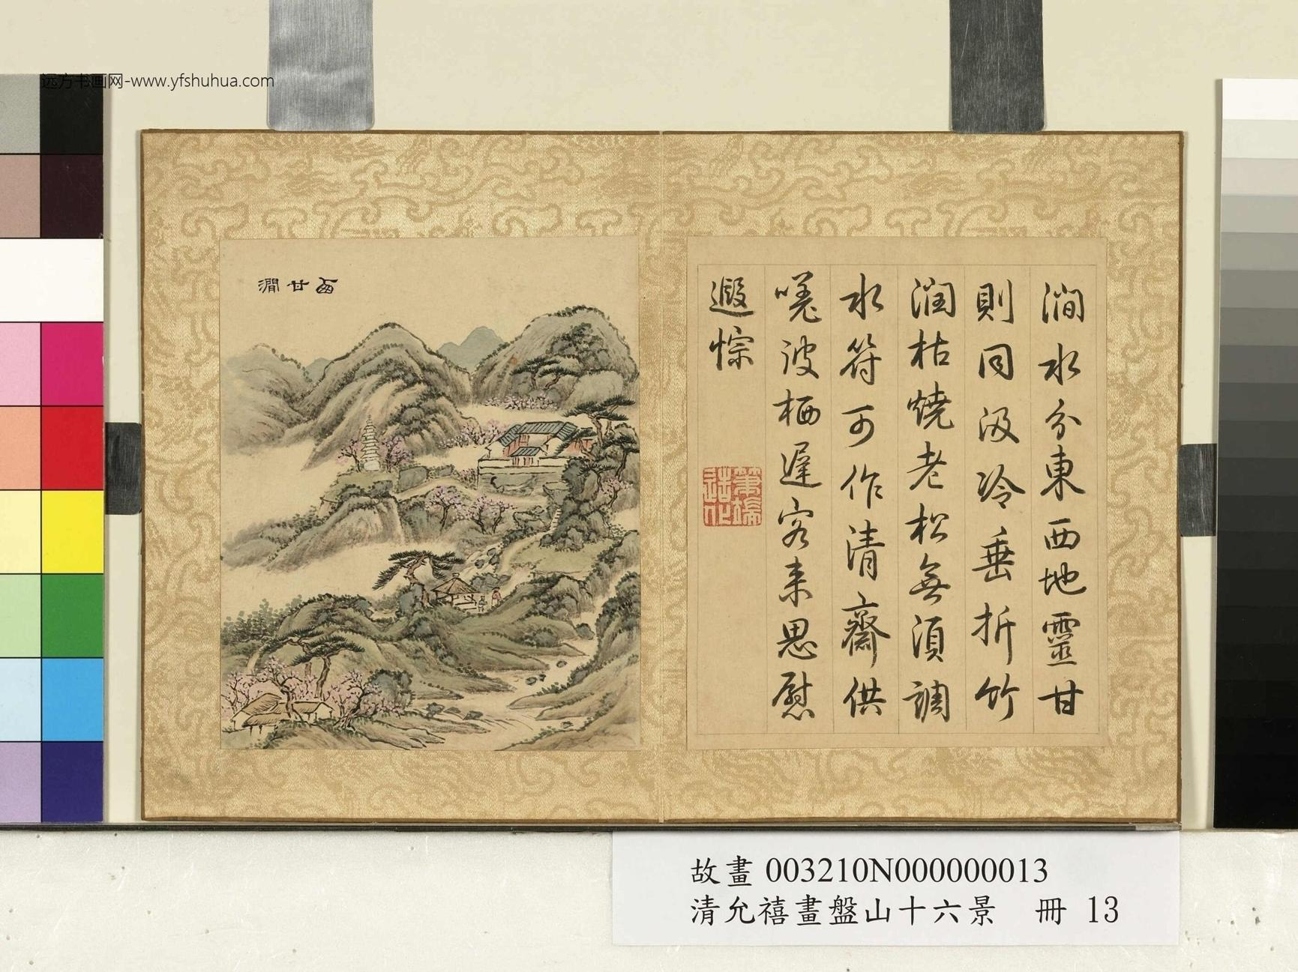 远方书画网-www.yfshuhua.com
西甘澗
澗水分東西地靈甘
則同汲冷垂折竹
潤枯燒老松無須調
水符可作清齋供
嘆彼栖遲客來思慰
遐悰
故畫 003210N000000013
清允禧畫盤山十六景 冊 13